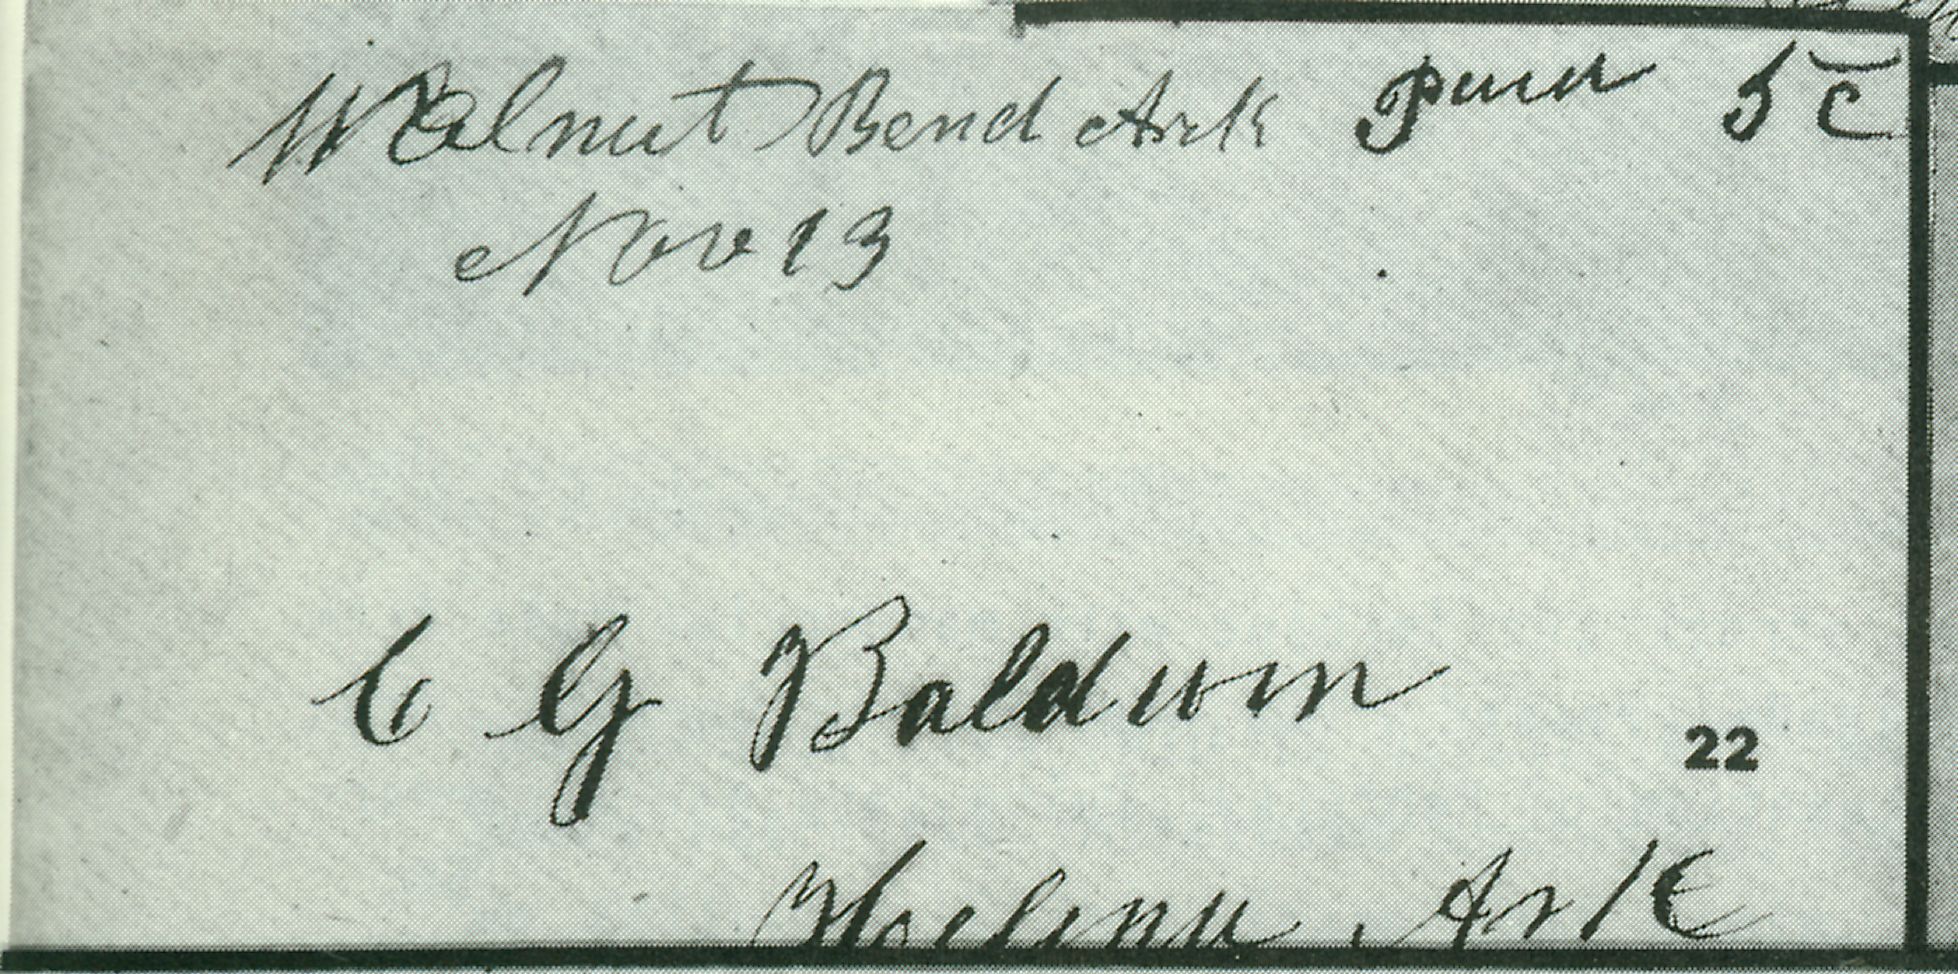 Walnut Bend Ark Paid 5c
Nov 13
C G Baldwin
22
Helena Ark